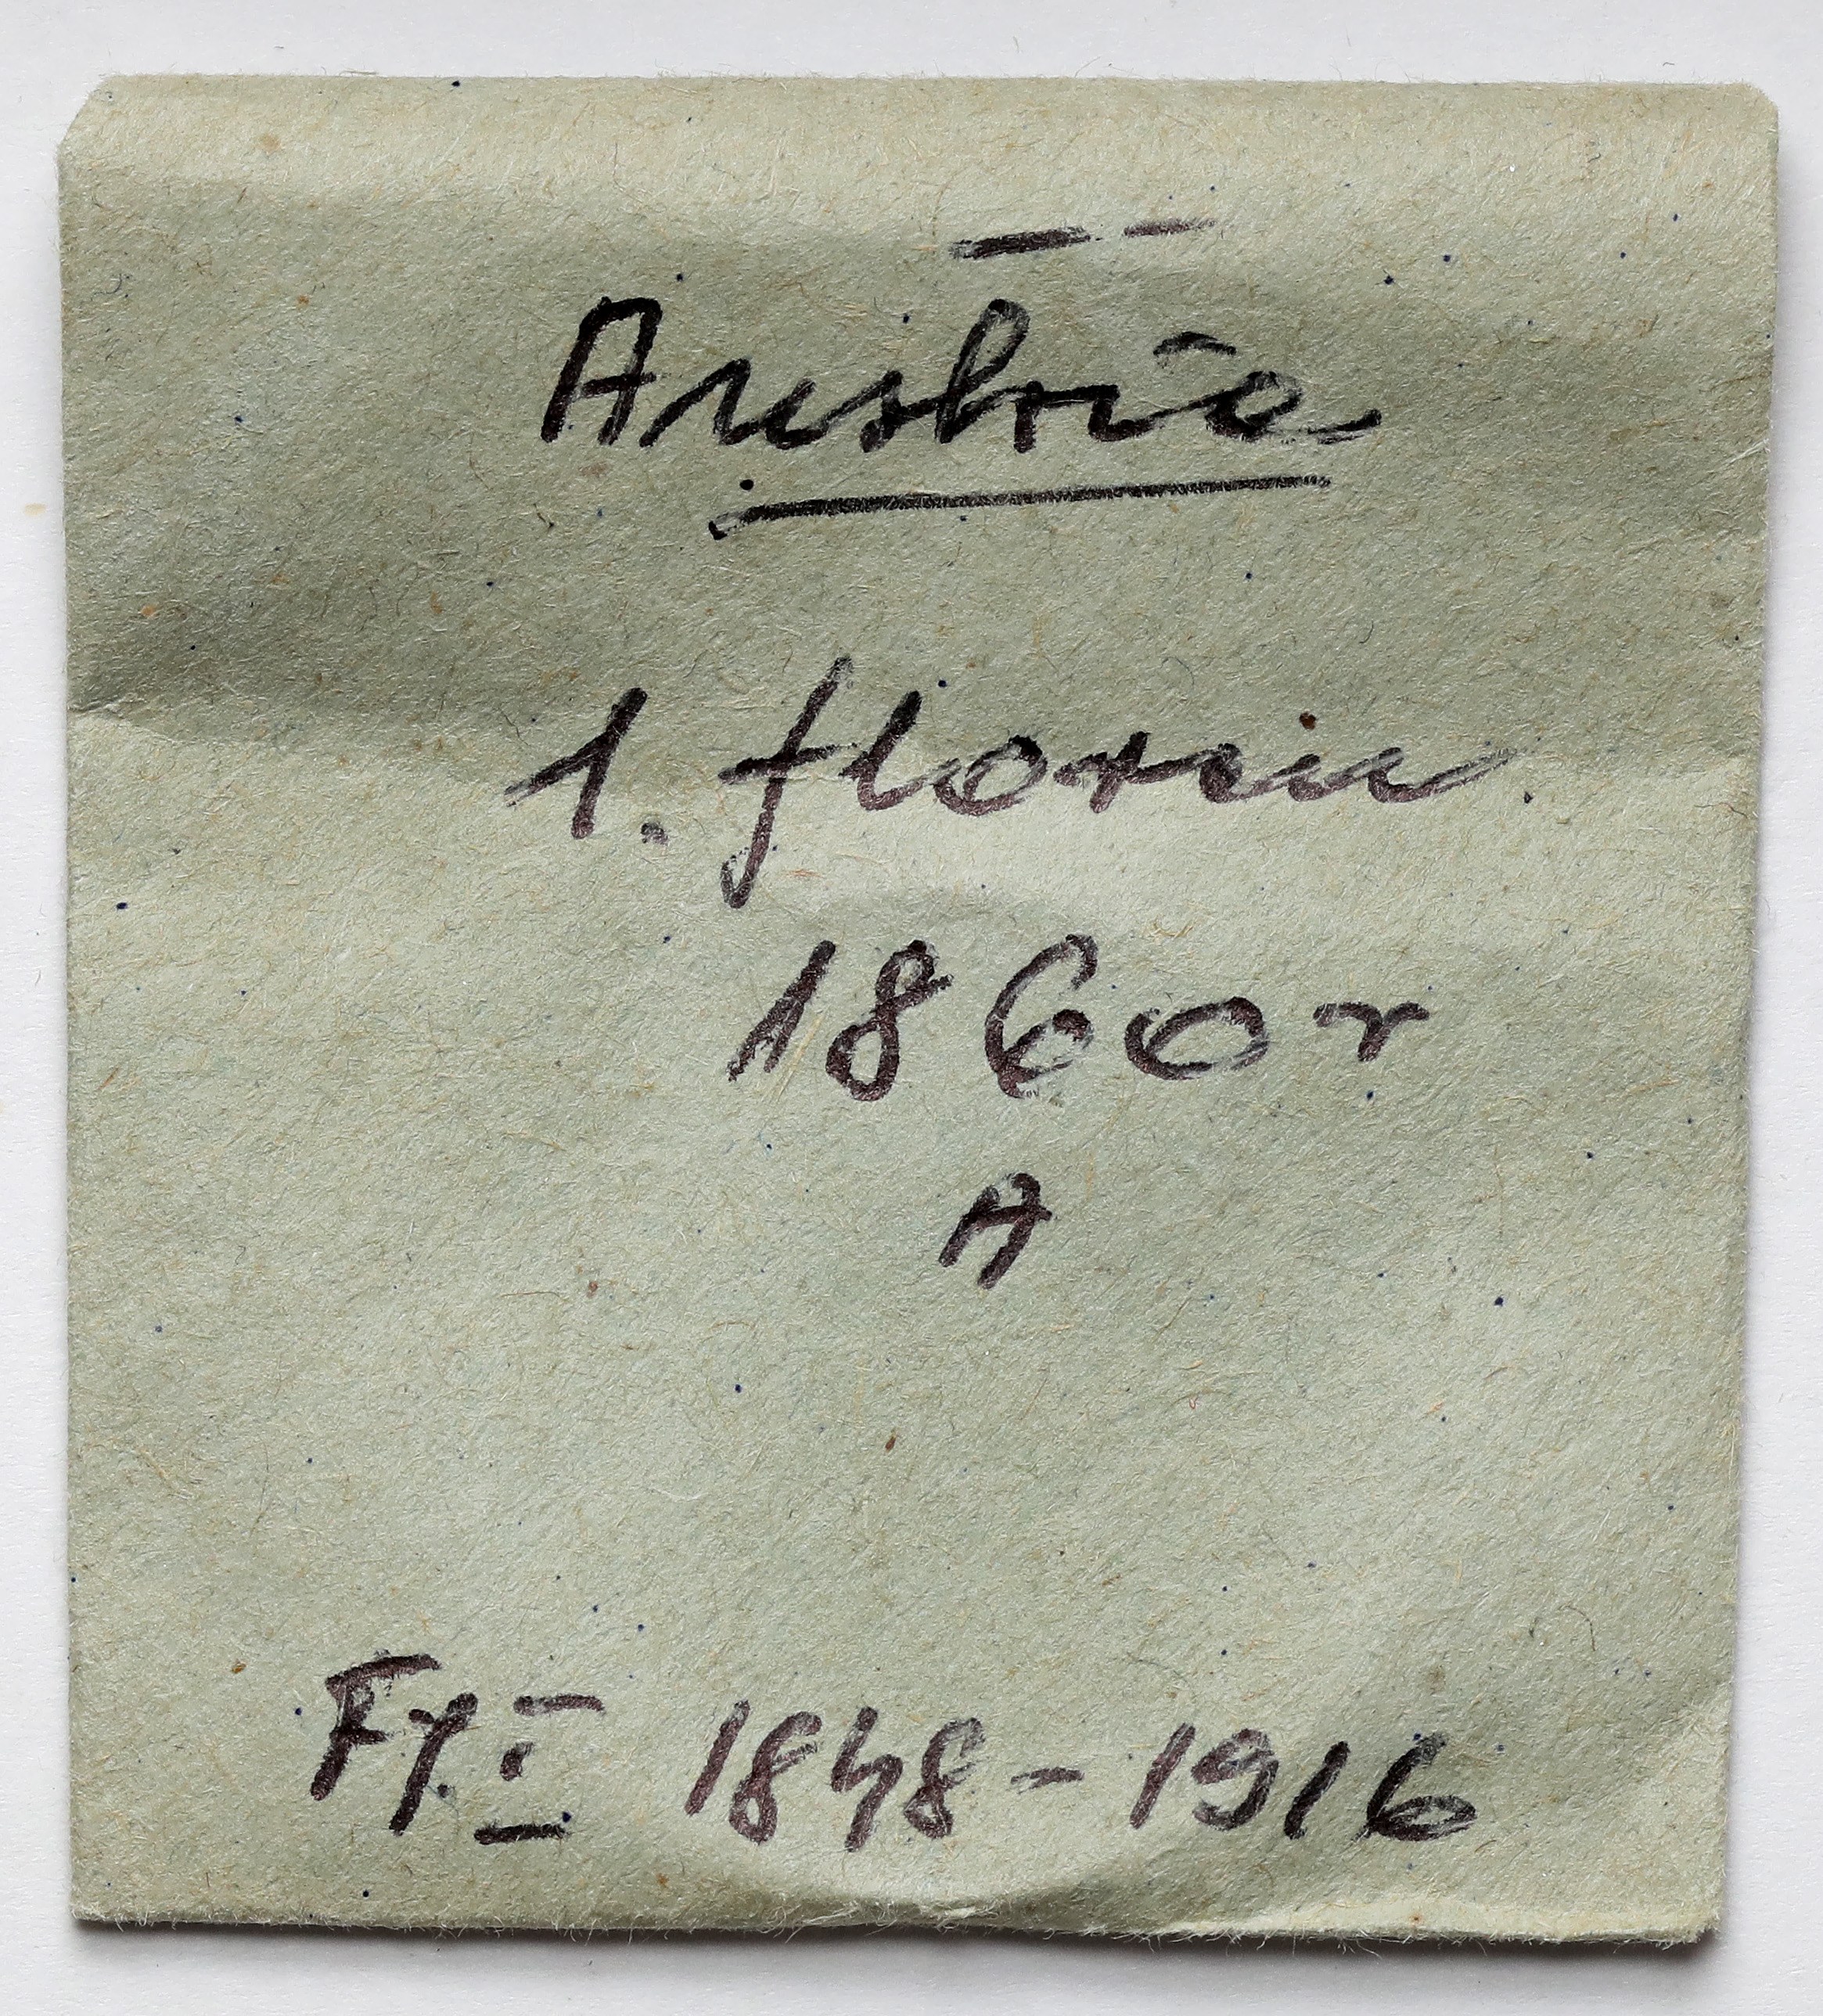 Austria
1. floren
1860 r
A
F.J. I 1848-1916